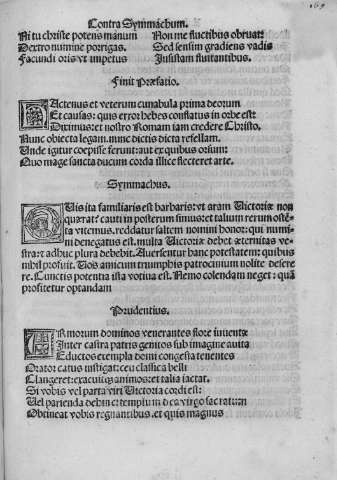 Contra Symmachum.
Ni tu christe potens manum
Dextro numine porrigas.
Facundi oris vt impetus
Non me fluctibus obruat:
Sed sensim gradiens vadis
Insistam fluitantibus.
Finit Præfatio.
HActenus et veterum cunabula prima deorum
Et causas: quis error hebes conflatus in orbe est:
Diximus: et nostro Romam iam credere Christo.
Nunc obiecta legam. nunc dictis dicta refellam.
Unde igitur coepisse ferunt: aut exquibus orsum:
Quo mage sancta ducum corda illice flecteret arte.
Symmachus.
QUis ita familiaris est barbaris: vt aram Uictoriæ non
quærat? cauti in posterum sumus: et talium rerum ostẽ
ta vitemus. reddatur saltem nomini honor: qui numi
ni denegatus est. multa Uictoriæ debet æternitas ve
stra: et adhuc plura debebit. Auersentur hanc potestatem: quibus
nihil profuit. Uois amicum triumphis patrocinium nolite desere
re. Cunctis potentia ista votiua est. Nemo colendam neget: quã
profitetur optandam
Prudentius.
ARmorum dominos venerantes flore iuuentæ
Inter castra patris genitos sub imagine auita
Eductos exempla domi congesta tenentes
Orator catus instigat: ceu classica belli
Clangeret: exacuitque animos: et talia iactat.
Si vobis vel parta viri Uictoria cordi est:
Uel parienda dehinc: templum dea virgo sacratum
Obtineat vobis regnantibus. et quis magnus